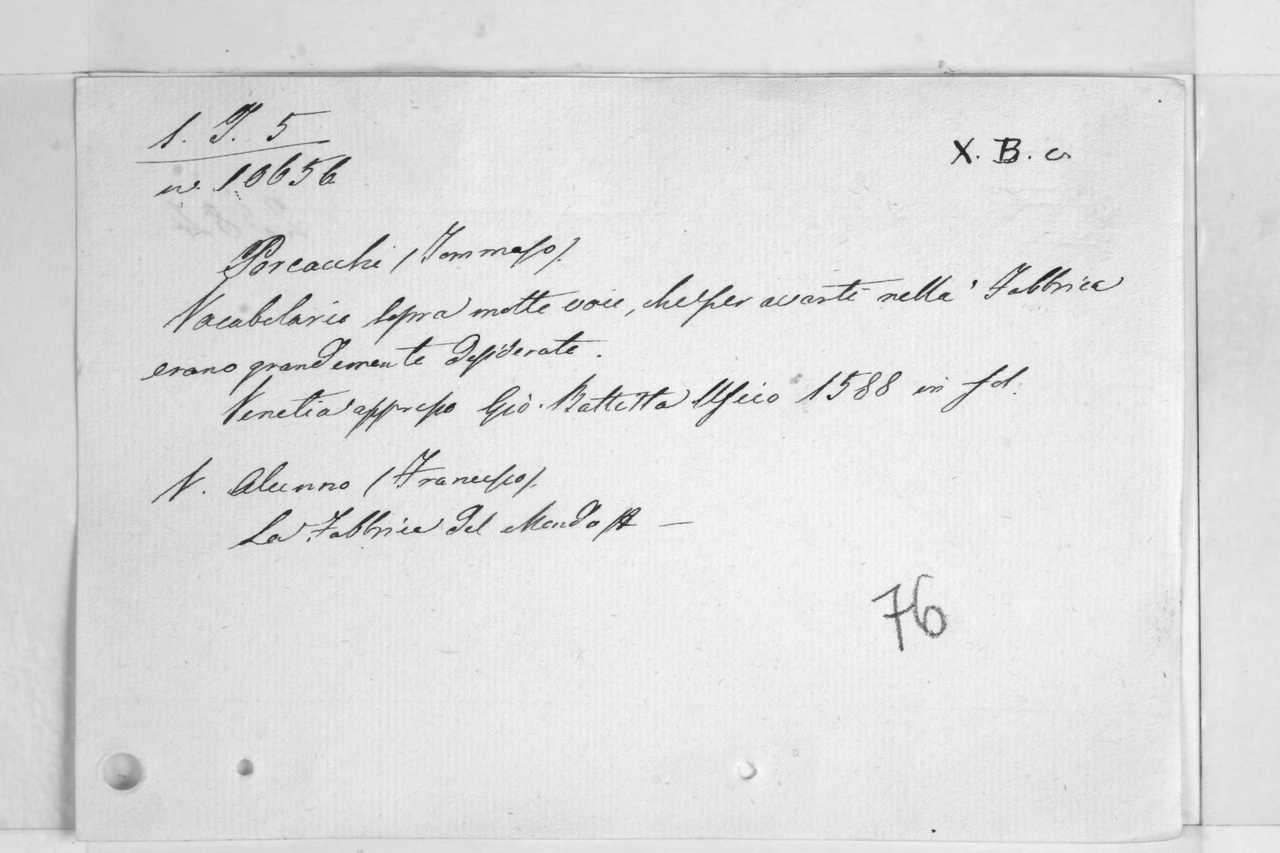 1. J. 5
nr. 10656
X. B. c.
Porcacchi (Tommaso).
Vocabolario sopra molte voci, che per avanti nella Fabbrica
erano grandemente desiderate.
Venetia appresso Gio. Battista Uscio 1588 in fol.
V. Alunno (Francesco).
La Fabbrica del Mondo
76